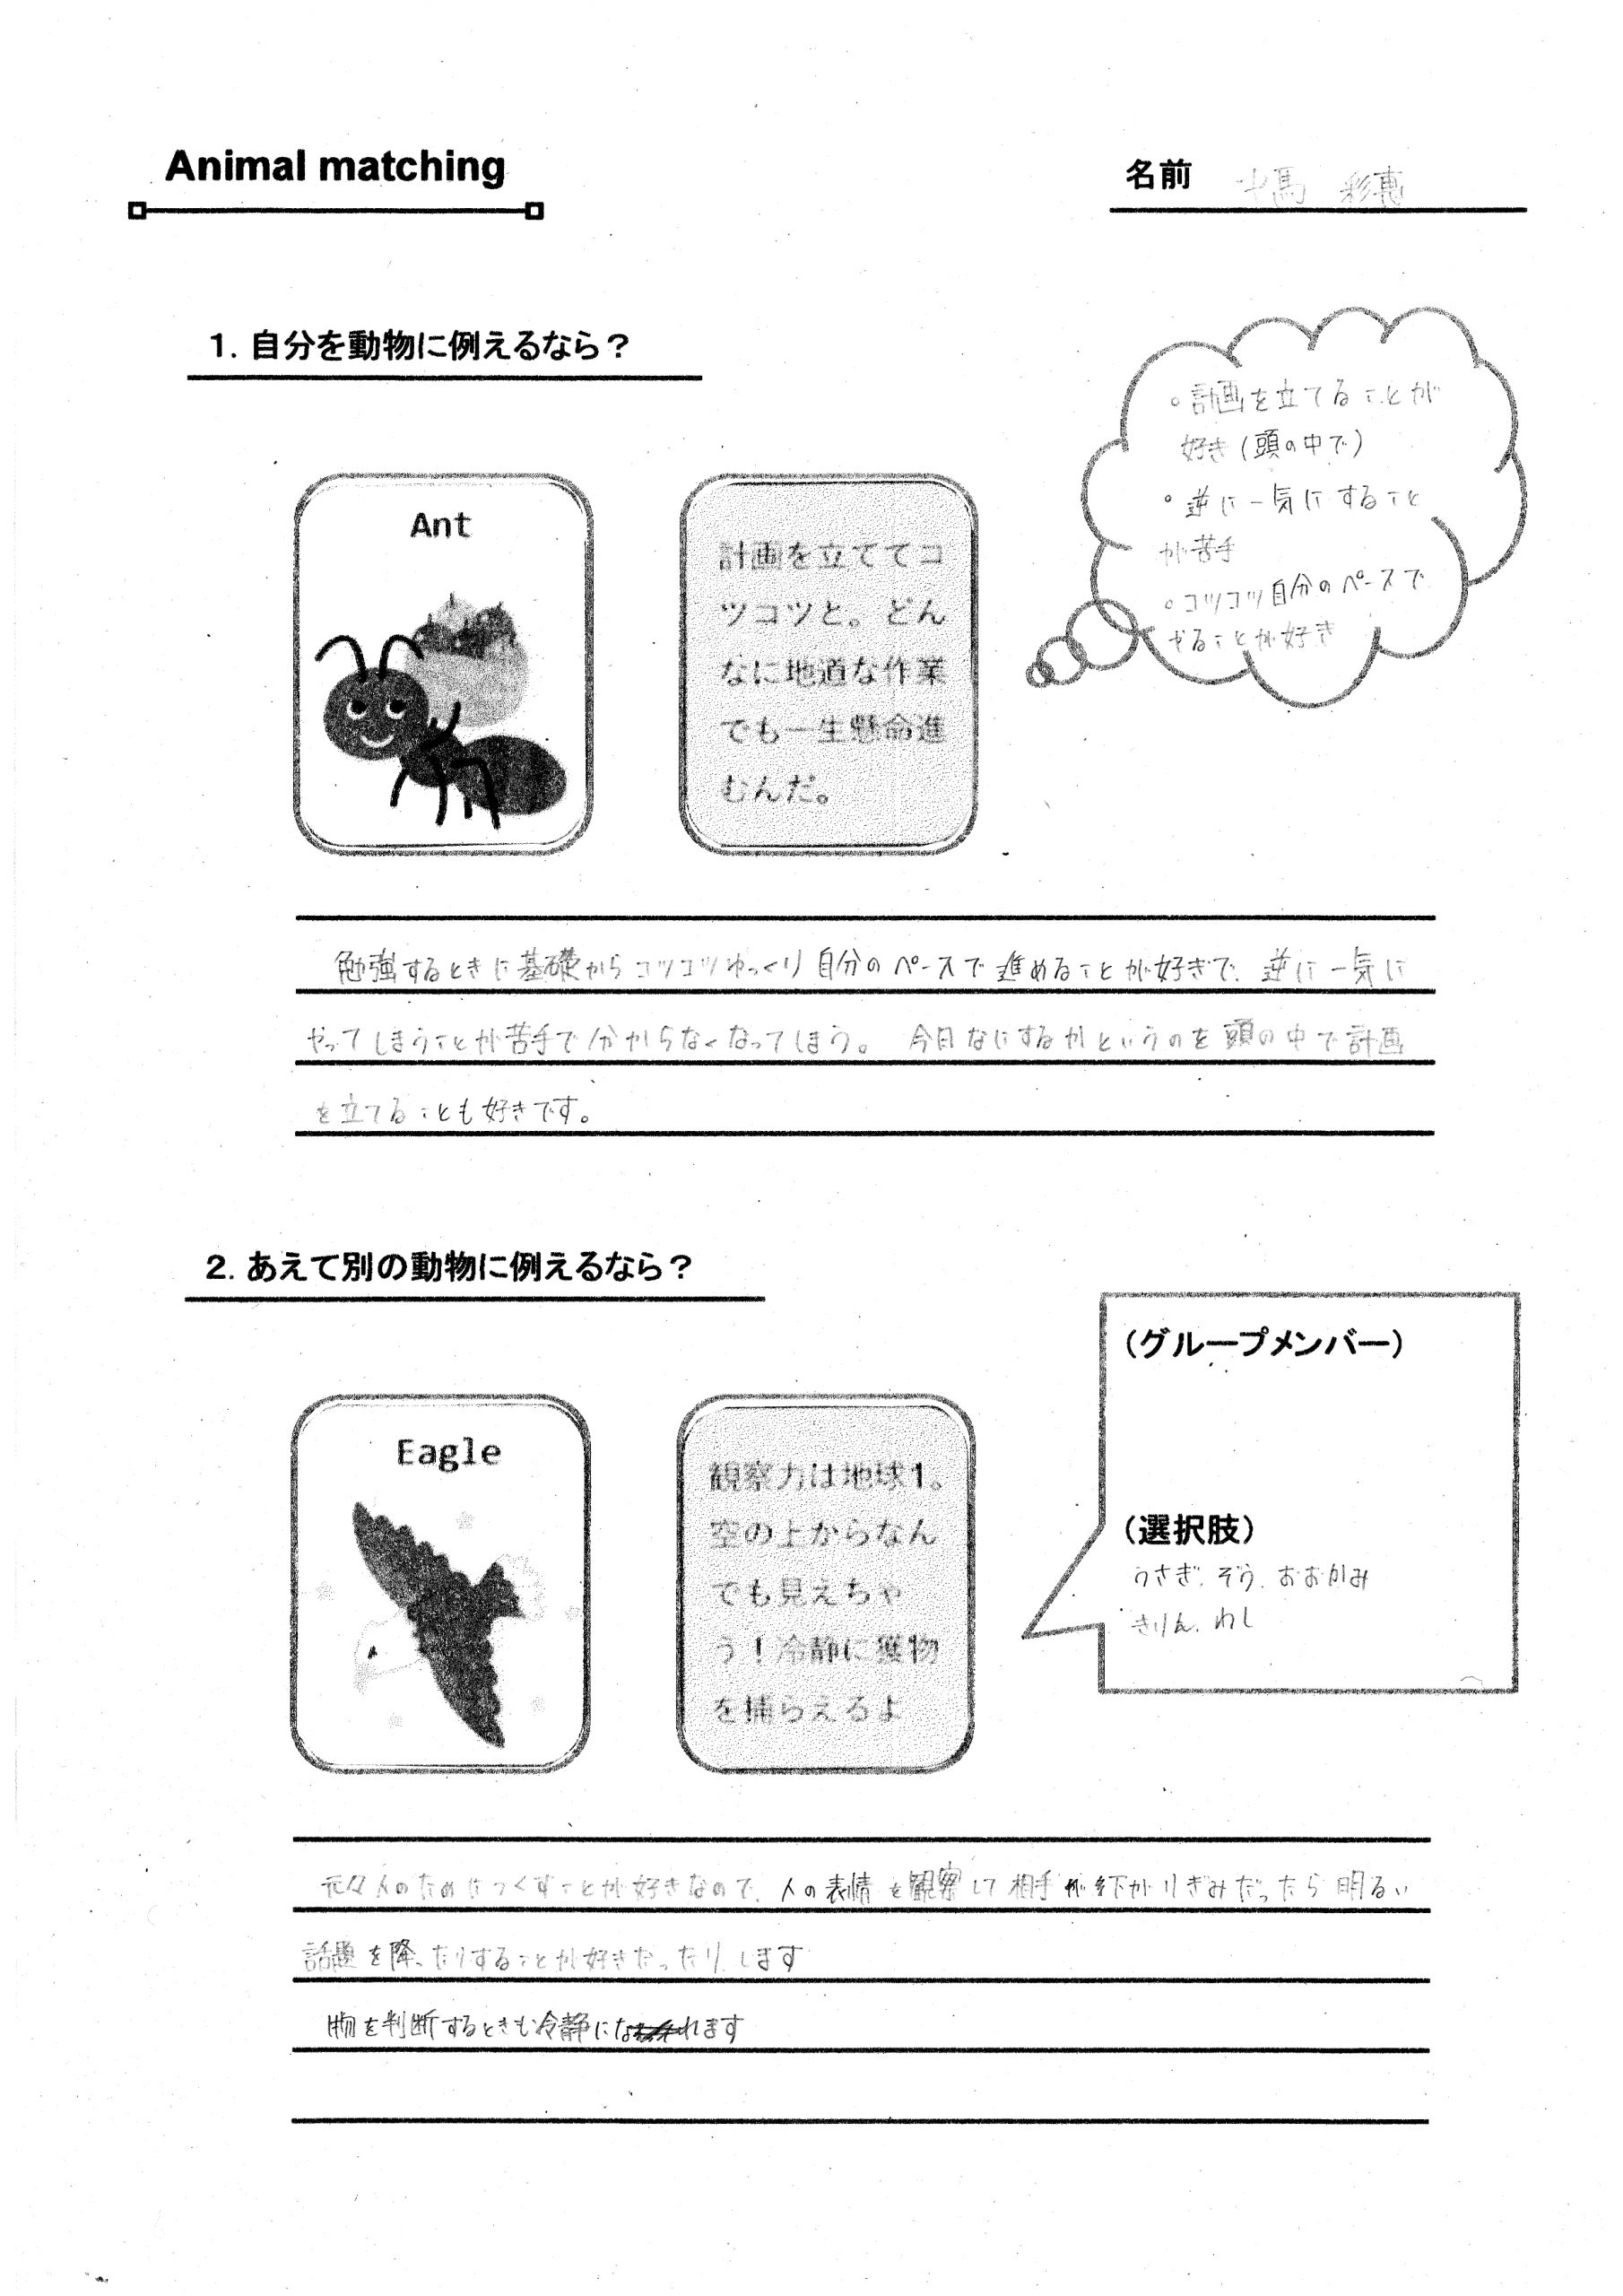 Animal matching
名前 中馬 彩
1. 自分を動物に例えるなら？
。計画を立てることが
好き(頭の中で)
。逆に一気にすること
が苦手
。コツコツ自分のペースで
やることが好き
Ant
計画を立ててコ
ツコツと。どん
なに地道な作業
でも一生懸命進
むんだ。
勉強するときに基礎からコツコツゆっくり自分のペースで進めることが好きで、逆に一気に
やってしまうことが苦手で分からなくなってしまう。 今日なにするかというのを頭の中で計画
を立てることも好きです。
2. あえて別の動物に例えるなら？
(グループメンバー)
(選択肢)
うさぎ、ぞう、おおかみ
きりん、わし
Eagle
観察力は地球1。
空の上からなん
でも見えちゃ
う！冷静に獲物
を捕らえるよ
元々人のためにつくすことが好きなので、人の表情を観察して相手が下がりぎみだったら明るい
話題を降ったりすることが好きだったりします
物を判断するときも冷静になれます